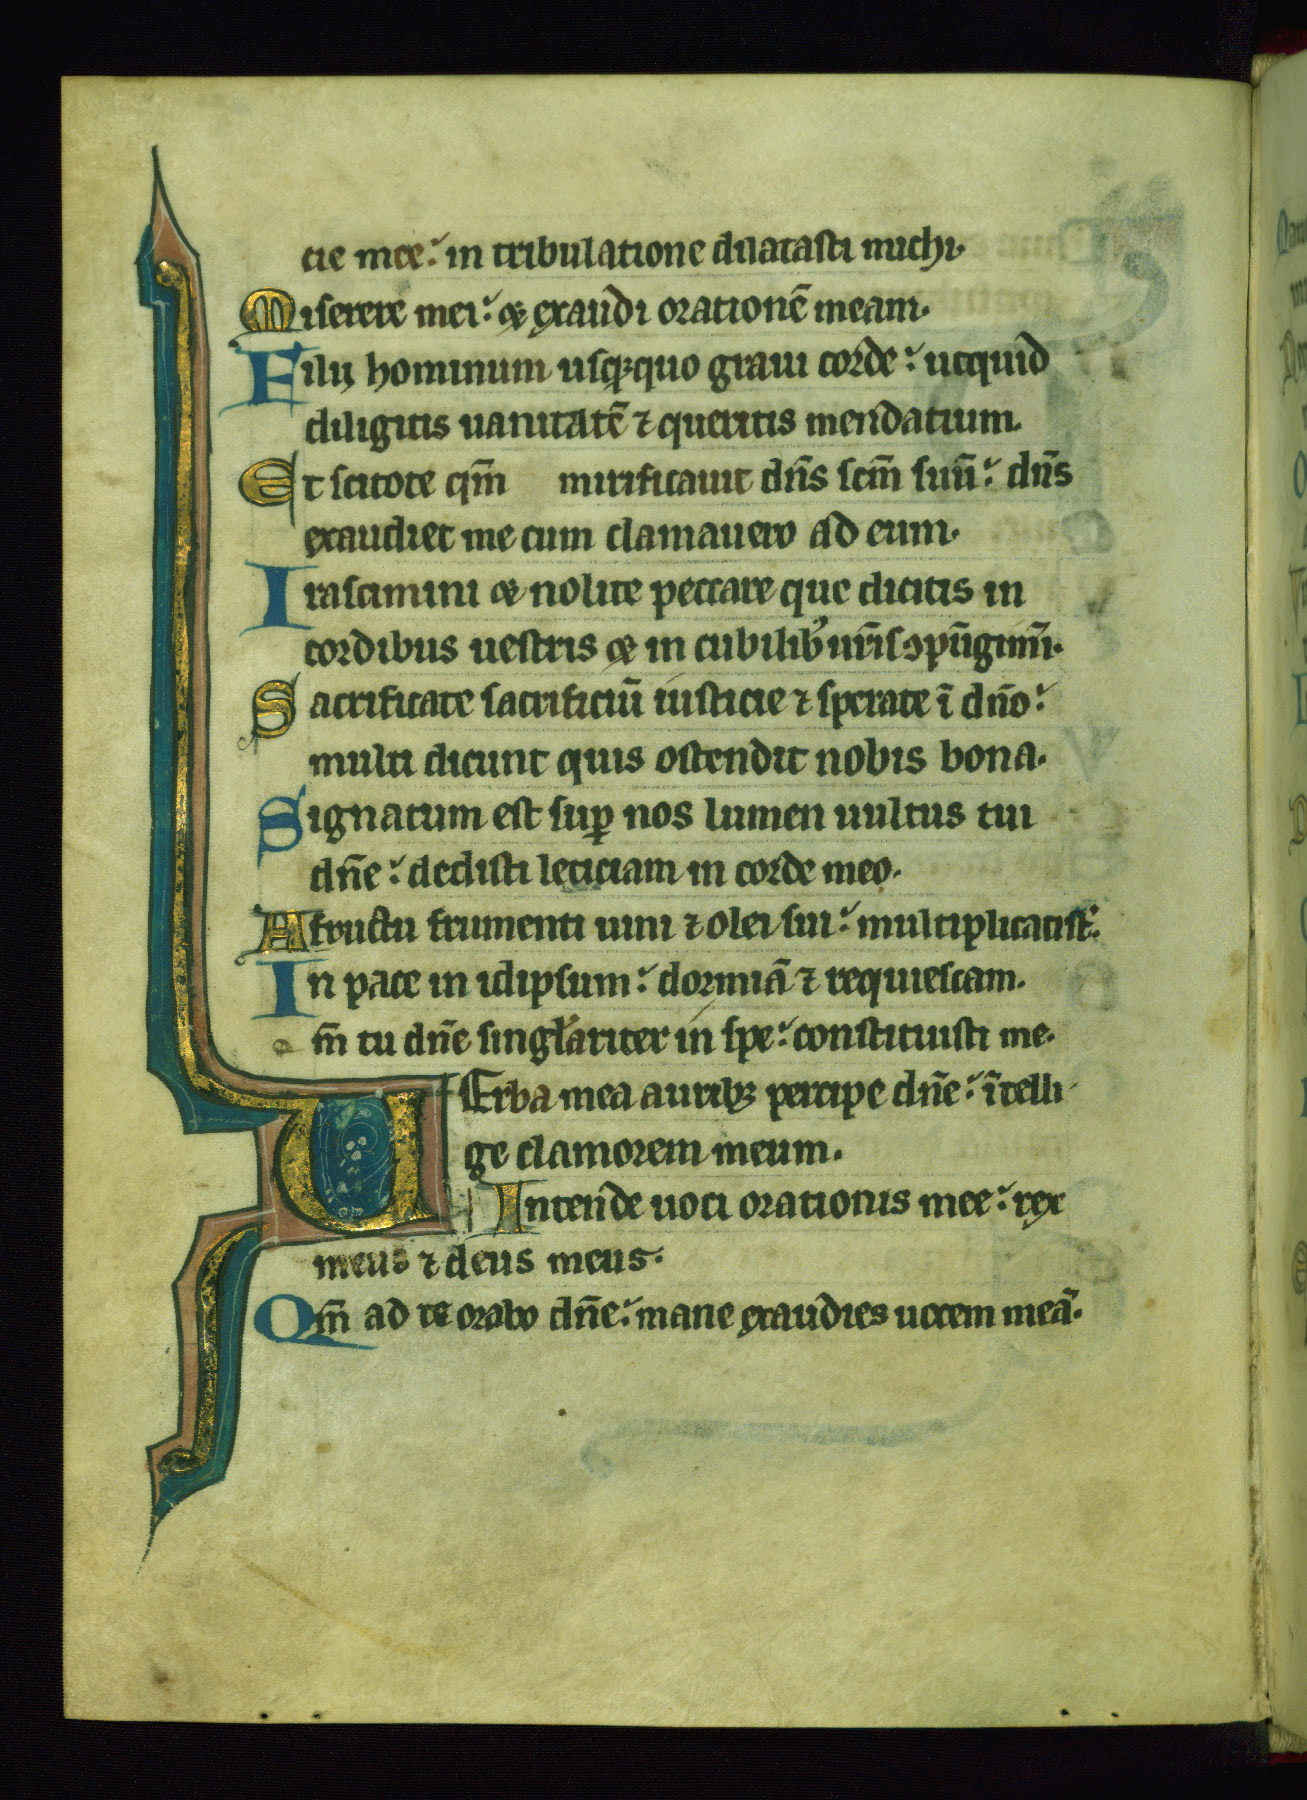 cie mee: in tribulatione dilatasti michi.
Miserere mei: et exaudi orationē meam.
Filij hominum usq;quo graui corde: utquid
diligitis uanitatē ⁊ queritis mendatium.
Et scitote qm̄ mirificauit dn̄s scm̄ suū: dn̄s
exaudiet me cum clamauero ad eum.
Irascimini et nolite peccare que dicitis in
cordibus uestris et in cubilib' ur̄is ꝯpūgimī.
Sacrificate sacrificiū iusticie ⁊ sperate ī dn̄o:
multi dicunt quis ostendit nobis bona.
Signatum est sup̄ nos lumen uultus tui
dn̄e: dedisti leticiam in corde meo.
A fructu frumenti uini ⁊ olei sui: multiplicati st̄.
In pace in idipsum: dormiā ⁊ requiescam.
m̄ tu dn̄e singl'ariter in spe: constituisti me.
UErba mea aurib; percipe dn̄e: ītelli
ge clamorem meum.
Intende uoci orationis mee: rex
meus ⁊ deus meus.
Qm̄ ad te orabo dn̄e: mane exaudies uocem meā.